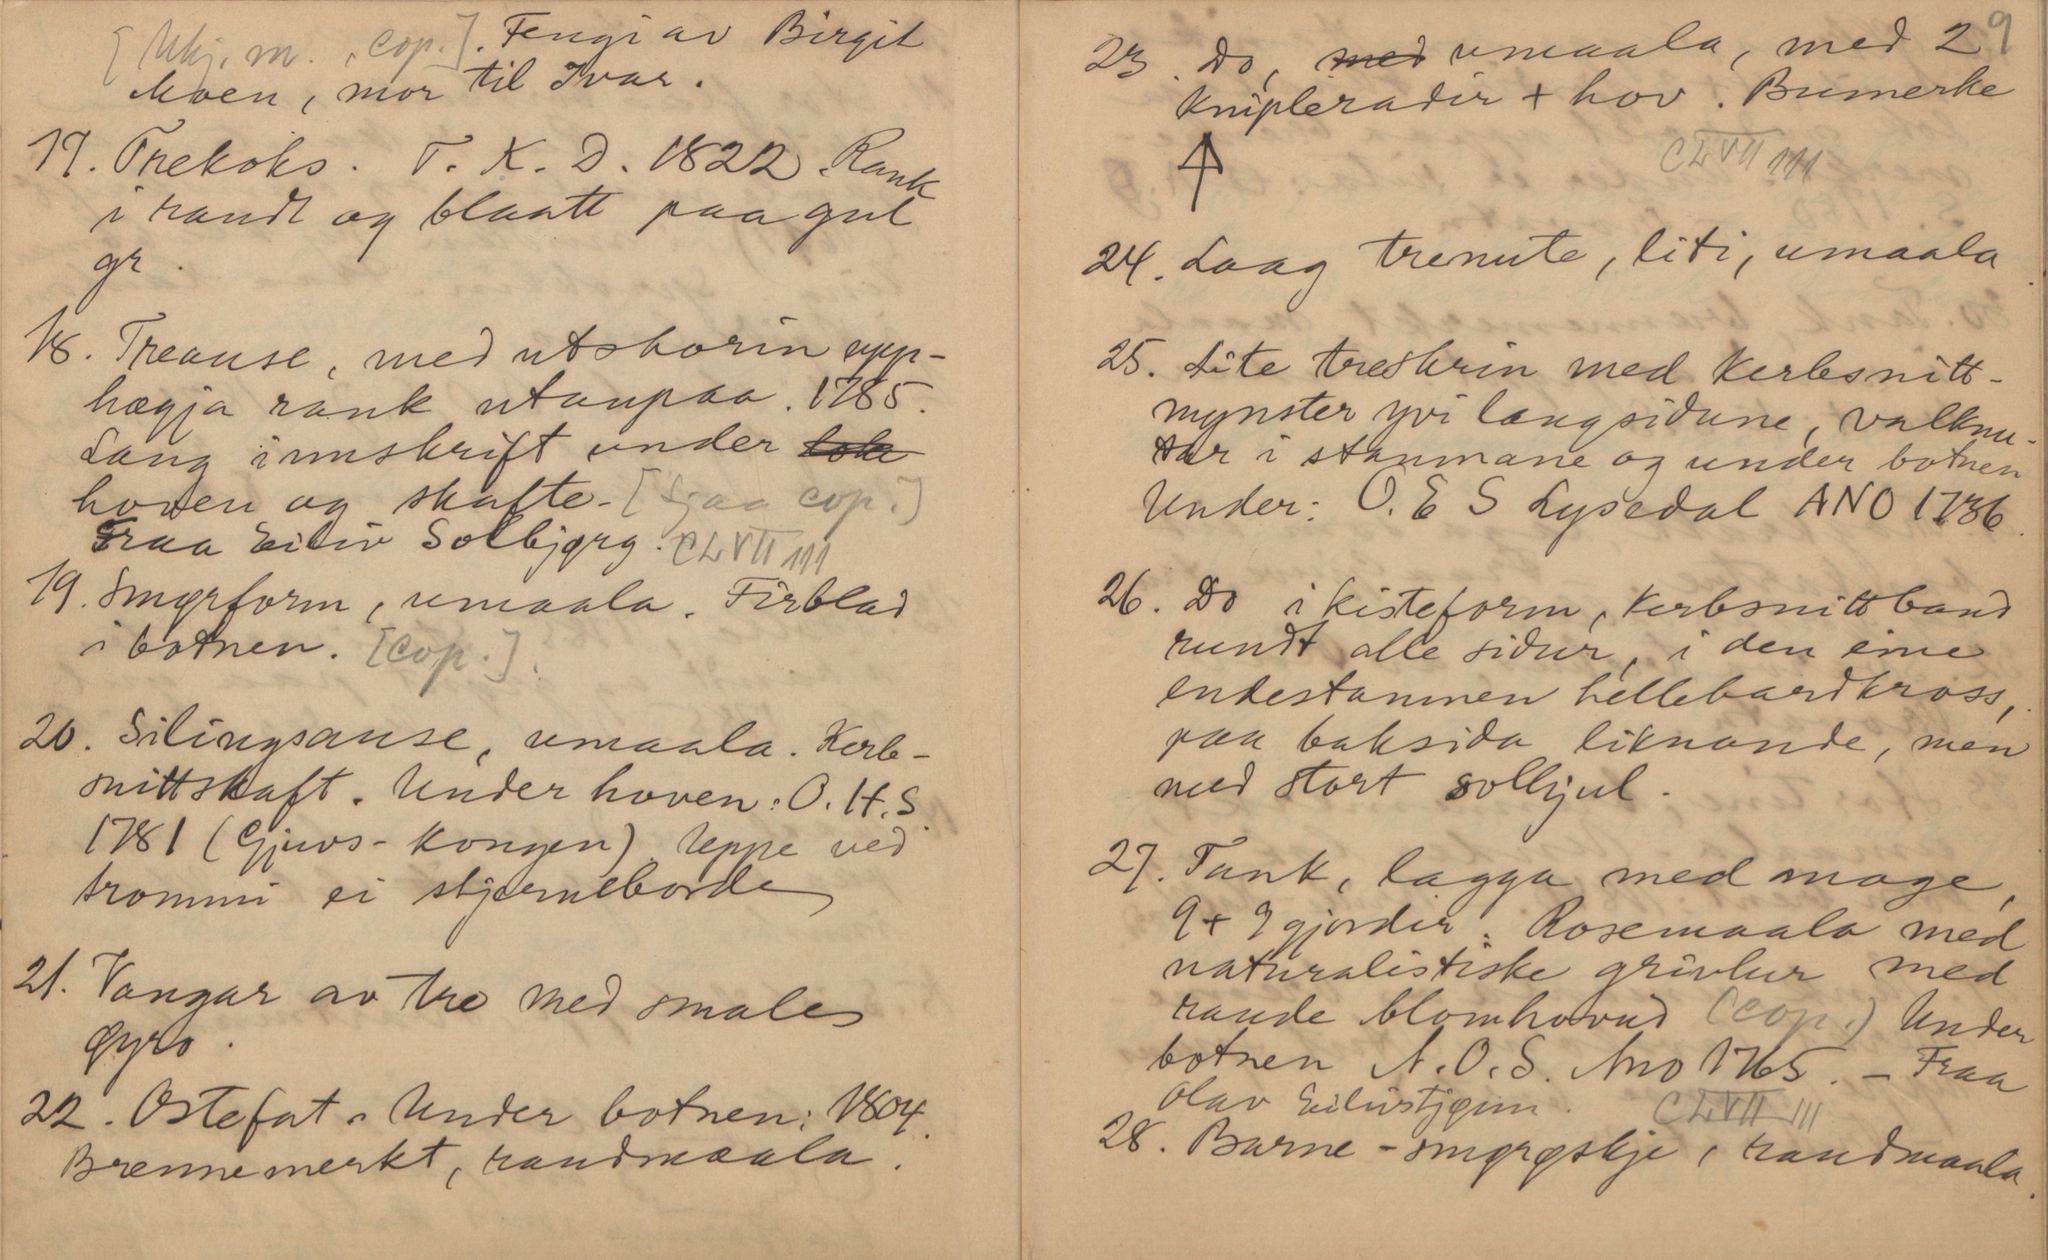 [Ukj. m. , cop.]. Fengi av Birgit
Moen, mor til Ivar.
17. Trekoks. T. K. D. 1822. Rank
i raudt og blaatt paa gul
gr.
18. Treause, med utskorin upp-
høgja rank utanpaa. 1785.
Lang innskrift under
hoven og skafte. [Sjaa cop.]
Fraa Eiliv Solbjørg. CLVII 111
19. Smørform, umaala. Firblad
i botnen. [cop.].
20. Silingsause, umaala. Kerb-
snittskaft. Under hoven: O. H. S.
1781 (Gjuvs-kongen). Uppe ved
trommi ei stjerneborde
21. Vangar av tre med smale
øyro.
22. Ostefat. Under botnen: 1804.
Brennemerkt, raudmaala.
9
23. Do, med umaala, med 2
knipleradir + hov. Bumerke
CLVII 111
24. Laag trenute, liti, umaala
25. Lite treskrin med Kerbsnitt-
mynster yvi langsidune, valknu-
tar i stammane og under botnen
Under: O. E S Lysedal ANO 1736.
26. Do i kisteform, Kerbsnittband
rundt alle sidur, i den eine
endestammen hellebardkross,
paa baksida liknande, men
med stort solhjul.
27. Tank, lagga med mage,
9 + 9 gjordir. Rosemaala med
naturalistiske grivlur med
raude blomhovud (cop.) Under
botnen N. O. S. Ano 1765. - Fraa
Olav Eilivstjønn. CLVII 111
28. Barne-smørøskje, raudmaala.